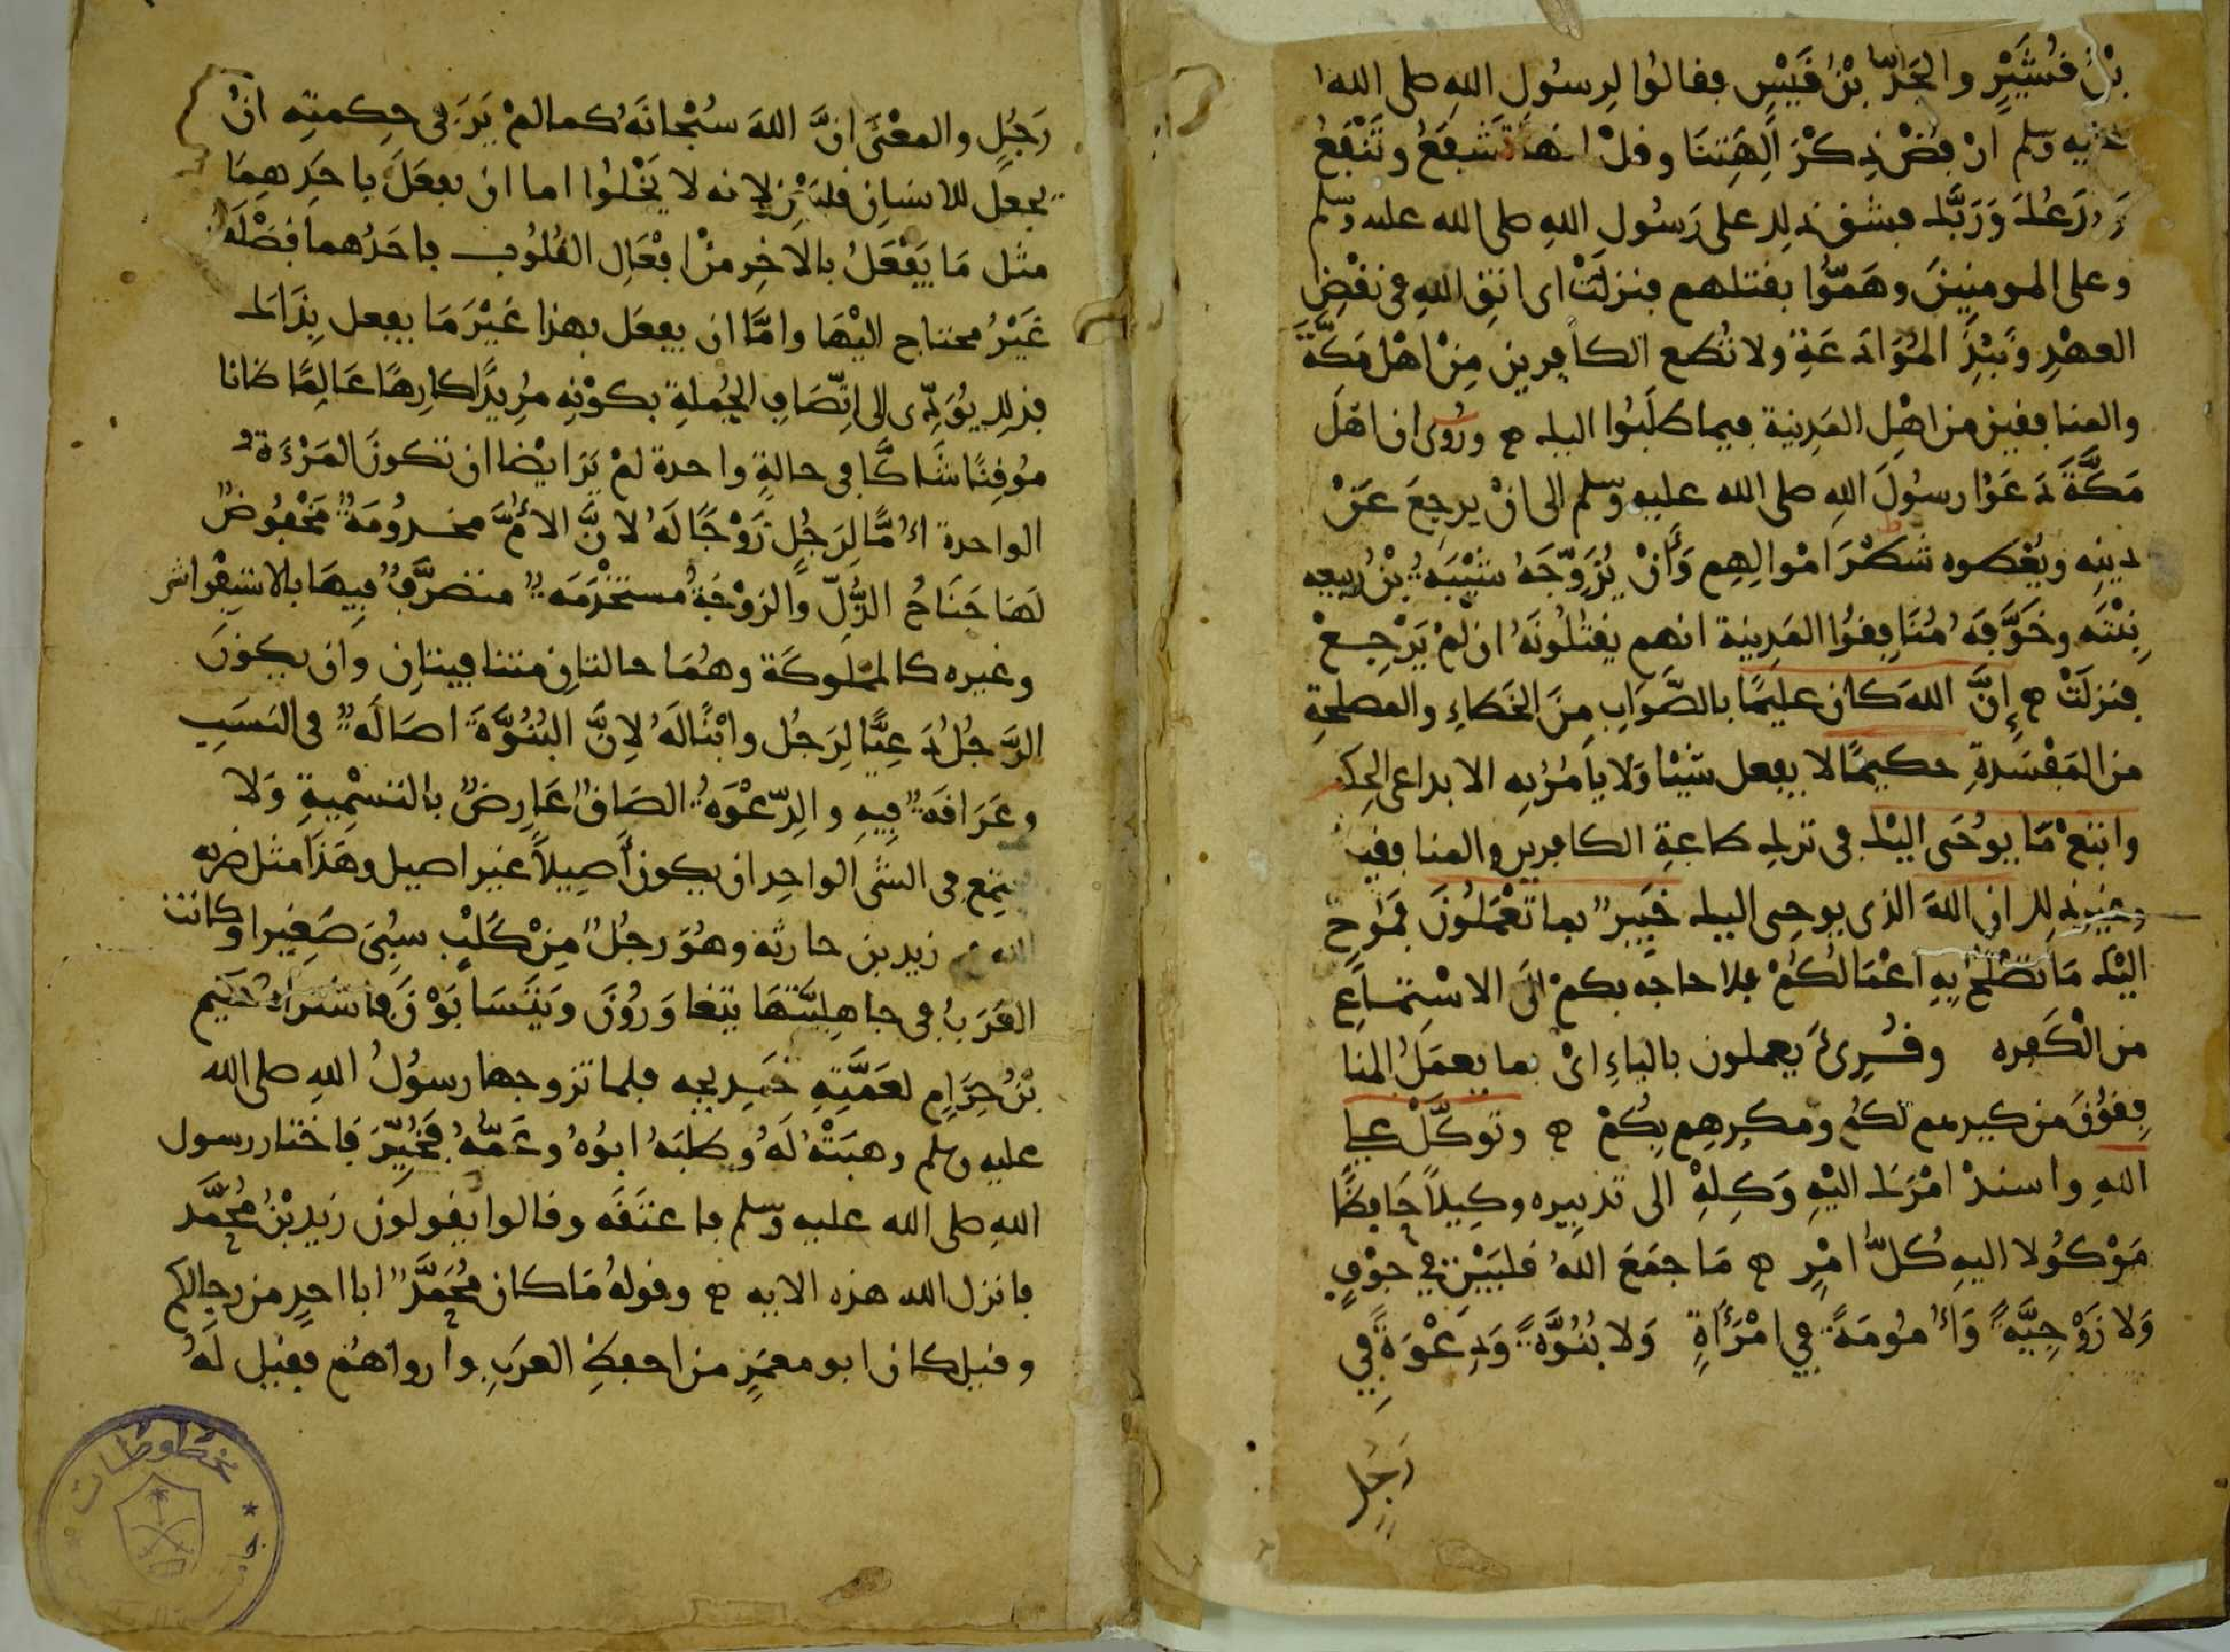 بْنُ قُشَيْرٍ والجَدّ بْنُ قَيْسٍ فقالوُا لِرسُولِ اللهِ صلى الله
عليه وسلم ارْفُضْ ذِكْرَ آلِهَتِنَا وقلْ انها تَشْفَعُ وتَنْفَعُ
وَنَدَعُكَ وَرَبَّك فشق ذلك على رَسُولِ اللهِ صلى الله عليه وسلم
وعلى المومنِينَ وهَمّوُا بقتلهم فنزلَتْ اى اتق اللهِ في نقْضِ
العهْدِ ونَبْذِ المُوَادَعَةِ ولا تُطع الكافرين مِنْ اهْل مَكَّةَ
والمنافقين من اهْلِ المَدِينة فيما طلَبُوا اليك ۞ ورُوى ان اهْلَ
مَكَّةَ دَعَوْا رسوُلَ اللهِ صلى الله عليه وسلم الى انْ يرجِعَ عَنْ
دينِه ويُعْطوه شَطْرَ امْوالِهِم وَأنْ يُزَوِّجَهُ شَيْبَةُ بْنُ ربيعه
بِنْتَه وخَوَّفَهُ مُنَافِقُوا المَدِينة انهم يقتُلُونَهُ ان لمْ يَرْجِعْ
فنزلَتْ ۞ إِنَّ اللهَ كان عليمًا بالصَّوَابِ مِنَ الخَطاءِ والمصلحةِ
من المَفْسَدةِ حكيمًا لا يفعل شَيْئا وَلا يأمُرُ به الا بداعى الحِكـ
واتبعْ مَا يوُحَى اليْك في ترك طاعةِ الكافرين والمنافقين
وغير ذلك ان اللهَ الذى يوحى اليك خَبِيرٌ بما تَعْمَلُونَ فمَوُحٍ
اليْك مَا تصْلحُ بِهِ اعْمَالُكُمْ فلا حاجه بكمْ الَى الاسْتِمَاعِ
من الْكَفره وقُرِئَ يعملون بالياءِ اىْ بما يعمَلُ المنا
فِقوُنَ من كيدهم لكُم ومكرِهِم بِكُمْ ۞ وتوكَّلْ على
اللهِ واسندْ امْرَك اليْهِ وَكِلهِْ الى تدبِيره وكِيلاً حَافِظًا
مَوْكُولا اليهِ كُلّ امْرٍ ۞ مَا جَمَعَ اللهُ قلبَيْن فِي جوْفٍ
وَلا زَوْجِيَّةً وَأُمُومَةً فِي امْرَأةٍ وَلا بُنُوَّةً وَدِعْوَةً فِي
رَجُلٍ
رَجُلٍ والمعْنَى انَّ اللهَ سُبْحانَهُ كما لمْ يَرَ في حِكمتِه انْ
يجعل للانسانِ قلبَيْنِ لانه لا يَخْلوُا اما ان يفعَلَ باحَدِهِمَا
مثل مَا يَفْعَلُ بالآخِرِ مِنْ افْعَالِ القُلوُبِ فاحَدُهما فضْلَةٌ
غَيْرُ محتاج اليْهَا وامَّا ان يفعَل بهذا غَيْرَ مَا يفعل بِذَاك
فذلك يُؤدِّى الى اتِّصَافِ الجُملةِ بكوْنِه مُرِيدًا كارِهًا عَالِمًا ظانا
مُوقِنًا شَاكًّا في حالةٍ واحدة لمْ يَرَ ايْضا ان تكونَ المَرْءَةُ
الواحدة أُمًّا لِرَجُلٍ زَوْجًا لَهُ لانَّ الأمَّ مخدُومَةٌ مَخْفُوضٌ
لَهَا جَنَاحُ الذُّلِّ والزوْجَةُ مُستخْدَمَةٌ متصَرَّفٌ فِيهَا بالاستِفْراش
وغيره كالمملوكَة وهُمَا حالتانِ متنافيتانِ وان يكونَ
الرَّجُلُ دَعِيًّا لِرَجُل وابْنًا لَهُ لِانَّ البُنُوَّةَ اصَالَةٌ في النسَبِ
وعَرَاقَةٌ فِيهِ والدِّعْوَةُ الصَاقٌ عَارِضٌ بالتسْمِيةِ وَلا
يجتمِع في الشى الواحِدِ ان يكون أصِيلاً غير اصيل وهَذَا مثل ضربه
الله في زيد بن حارثه وهُوَ رجُلٌ مِنْ كَلْبٍ سُبِىَ صَغِيرا وكانت
العَرَبُ في جاهِليَّتهَا يتغاوَرُونَ ويَتَسَابَوْنَ فاشتراهُ حكيم
بْنُ حِزَامٍ لعَمَّتِهِ خَدِيجه فلما تزوجها رسوُلُ اللهِ صلى الله
عليه وسلم وهبَتْهُ لَهُ وطلبَهُ ابوُهُ وعَمُّهُ فَخُيِّرَ فاختار رسول
اللهِ صلى الله عليه وسلم فاعتَقَه وقالوا يقولون زَيد بْنُ مُحَمَّد
فانزل الله هذه الايه ۞ وقولهُ مَا كان مُحَمَّدٌ ابا احدٍ من رجالكم
وقيل كان ابو معمَرٍ من احفظِ العرَبِ وارواهُم فقيل لَهُ
مخطوطات